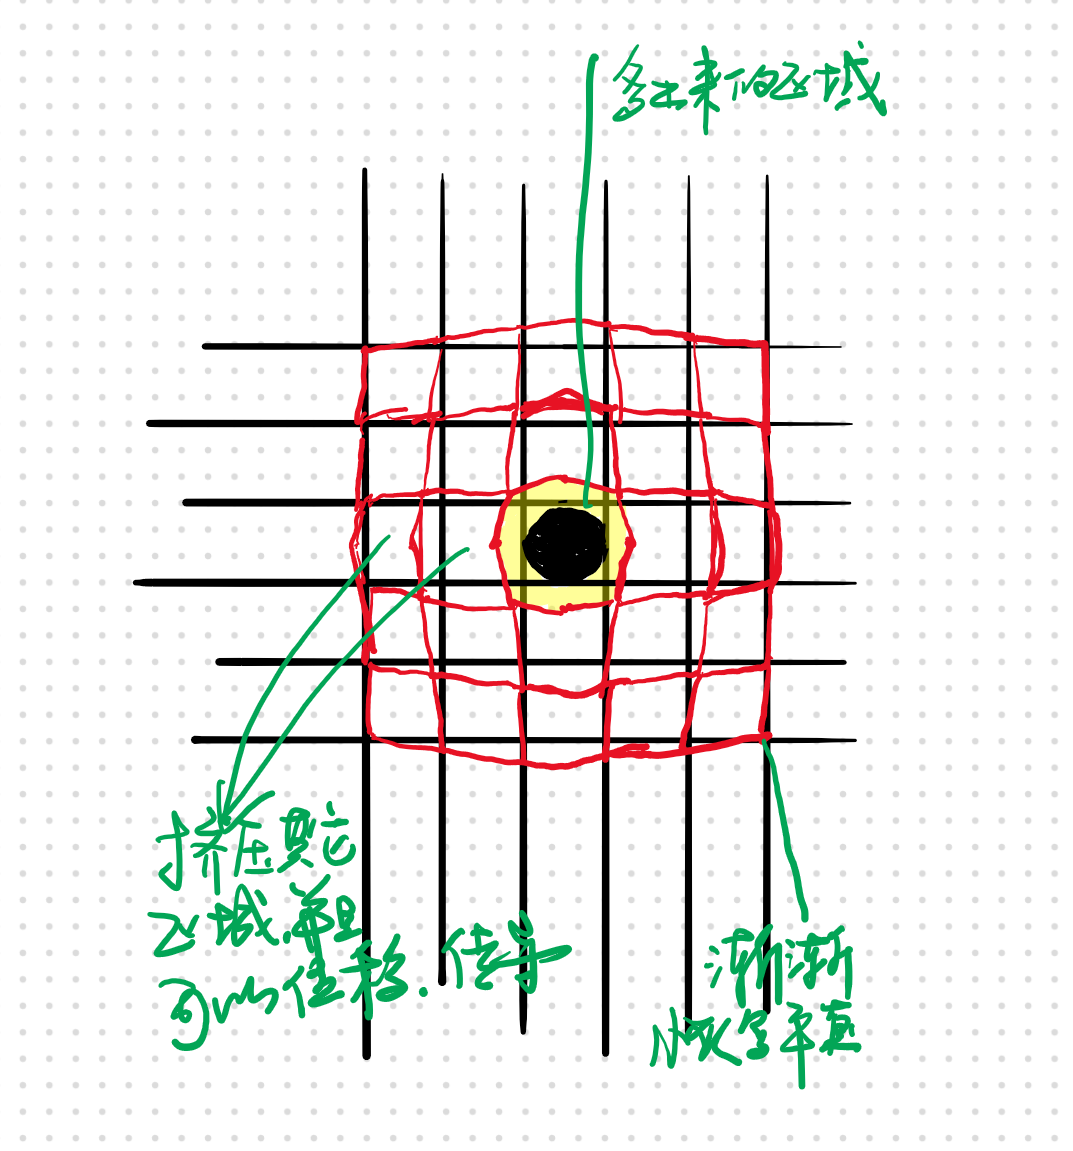 多出来的区域
挤压其它
区域,并且
可以位移.传导
渐渐
恢复平直